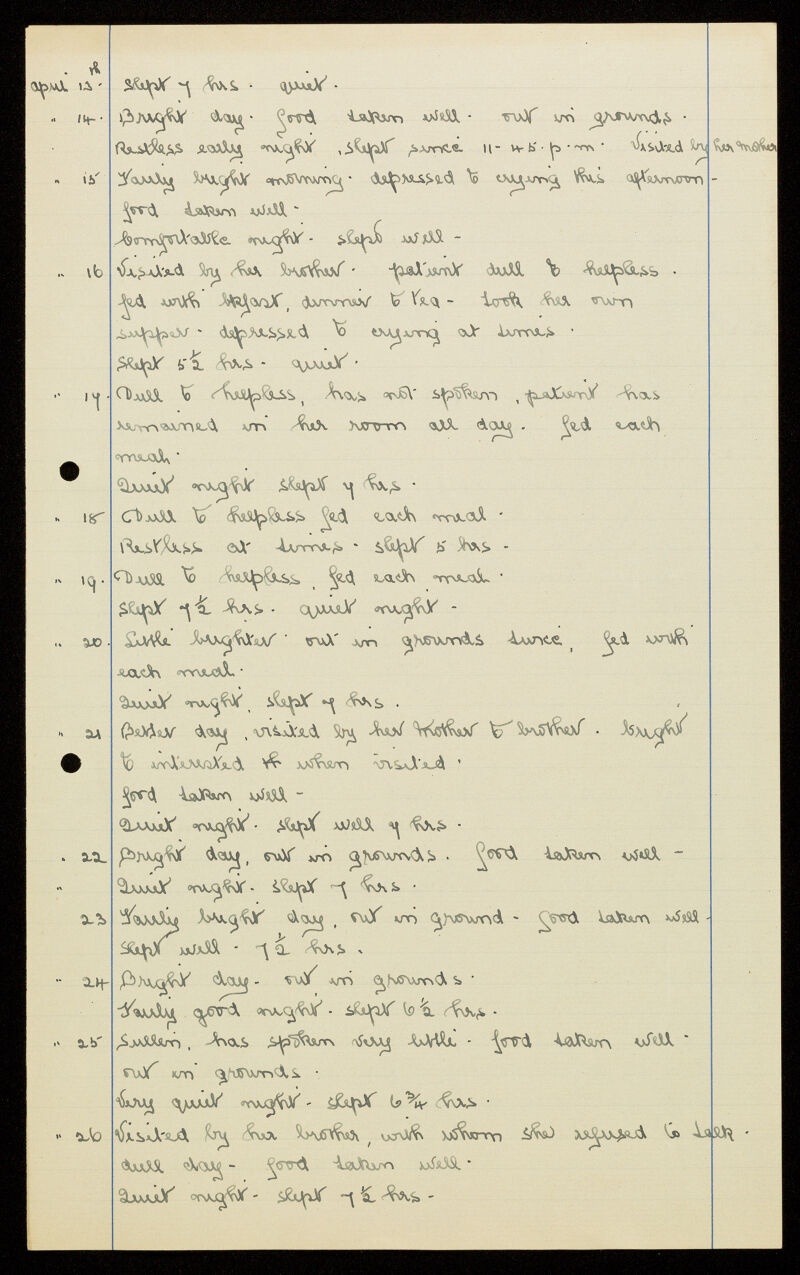 April 13th. Slept 7 hrs. quiet.
" 14. Bright day. food taken well. out in grounds.
Restless early night, slept since 11-45.p.m. Visited by her mother
" 15 Fairly bright morning. depressed & crying this afternoon -
food taken well -
Comfortable night. slept well -
" 16 Visited by her brother. patient dull & helpless.
fed with bkfast, dinner & tea - took her own
supper. depressed & crying at times.
Slept 5½ hrs. quiet.
" 17. Dull & helpless, has not spoken, patient has
remained in her room all day. fed each
meal.
Quiet night slept 7 hrs.
" 18 Dull & helpless fed each meal.
Restless at times - slept 5 hrs -
" 19. Dull & helpless, fed each meal.
Slept 7½ hrs. quiet night -
" 20. Little brighter out in grounds twice, fed with
each meal.
Quiet night, slept 7 hrs.
" 21 Better day, visited by her mother & brother. bright
& interested when visited.
food taken well -
Quiet night. slept well 7 hrs.
" 22 Bright day, out in grounds. food taken well -
" Quiet night. slept 7 hrs.
23 Fairly bright day, out in ground - food taken well -
Slept well - 7½ hrs.
" 24 Bright day - out in grounds.
Fairly good night. slept 6½ hrs.
" 25 Sullen, has spoken very little - food taken well -
out in grounds.
Very quiet night - slept 6¾ hrs.
" 26 Visited by her brother, with whom she refused to talk.
dull day - food taken well.
Quiet night - slept 7½ hrs -